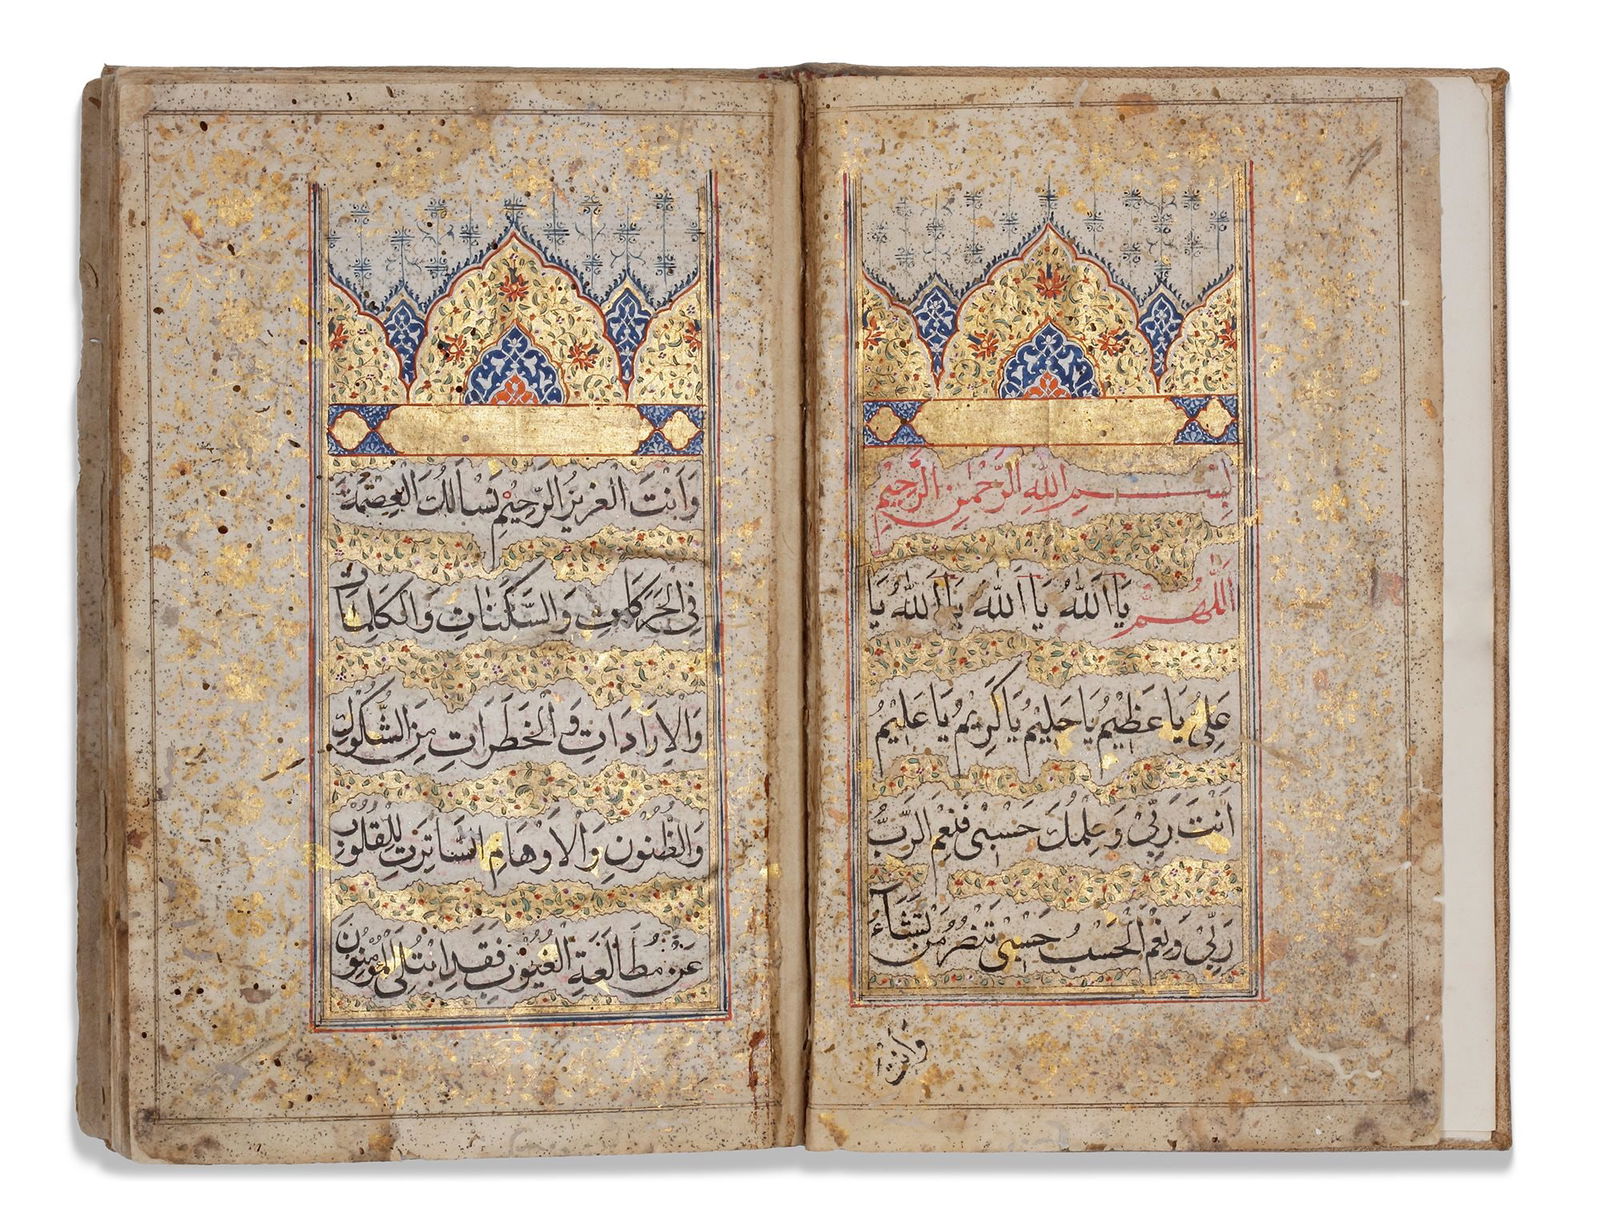 بِسْمِ اللهِ الرَّحْمٰنِ الرَّحِيْمِ
اَللّٰهُمَّ يَا اَللهُ يَا اَللهُ يَا اَللهُ يَا
عَلِيُّ يَا عَظِيْمُ يَا حَلِيْمُ يَا كَرِيْمُ يَا عَلِيْمُ
اَنْتَ رَبِّيْ وَعِلْمُكَ حَسْبِيْ فَنِعْمَ الرَّبُّ
رَبِّيْ وَنِعْمَ الْحَسْبُ حَسْبِيْ تَنْصُرُ مَنْ تَشَاءُ
وَانت
وَاَنْتَ الْعَزِيْزُ الرَّحِيْمُ نَسْاَلُكَ الْعِصْمَةَ
فِي الْحَرَكَاتِ وَالسَّكَنَاتِ وَالْكَلِمَاتِ
وَالْاِرَادَاتِ وَالْخَطَرَاتِ مِنَ الشُّكُوْكِ
وَالظُّنُوْنِ وَالْاَوْهَامِ السَّاتِرَةِ لِلْقُلُوْبِ
عَنْ مُطَالَعَةِ الْغُيُوْبِ فَقَدِ ابْتُلِيَ الْمُؤْمِنُوْنَ